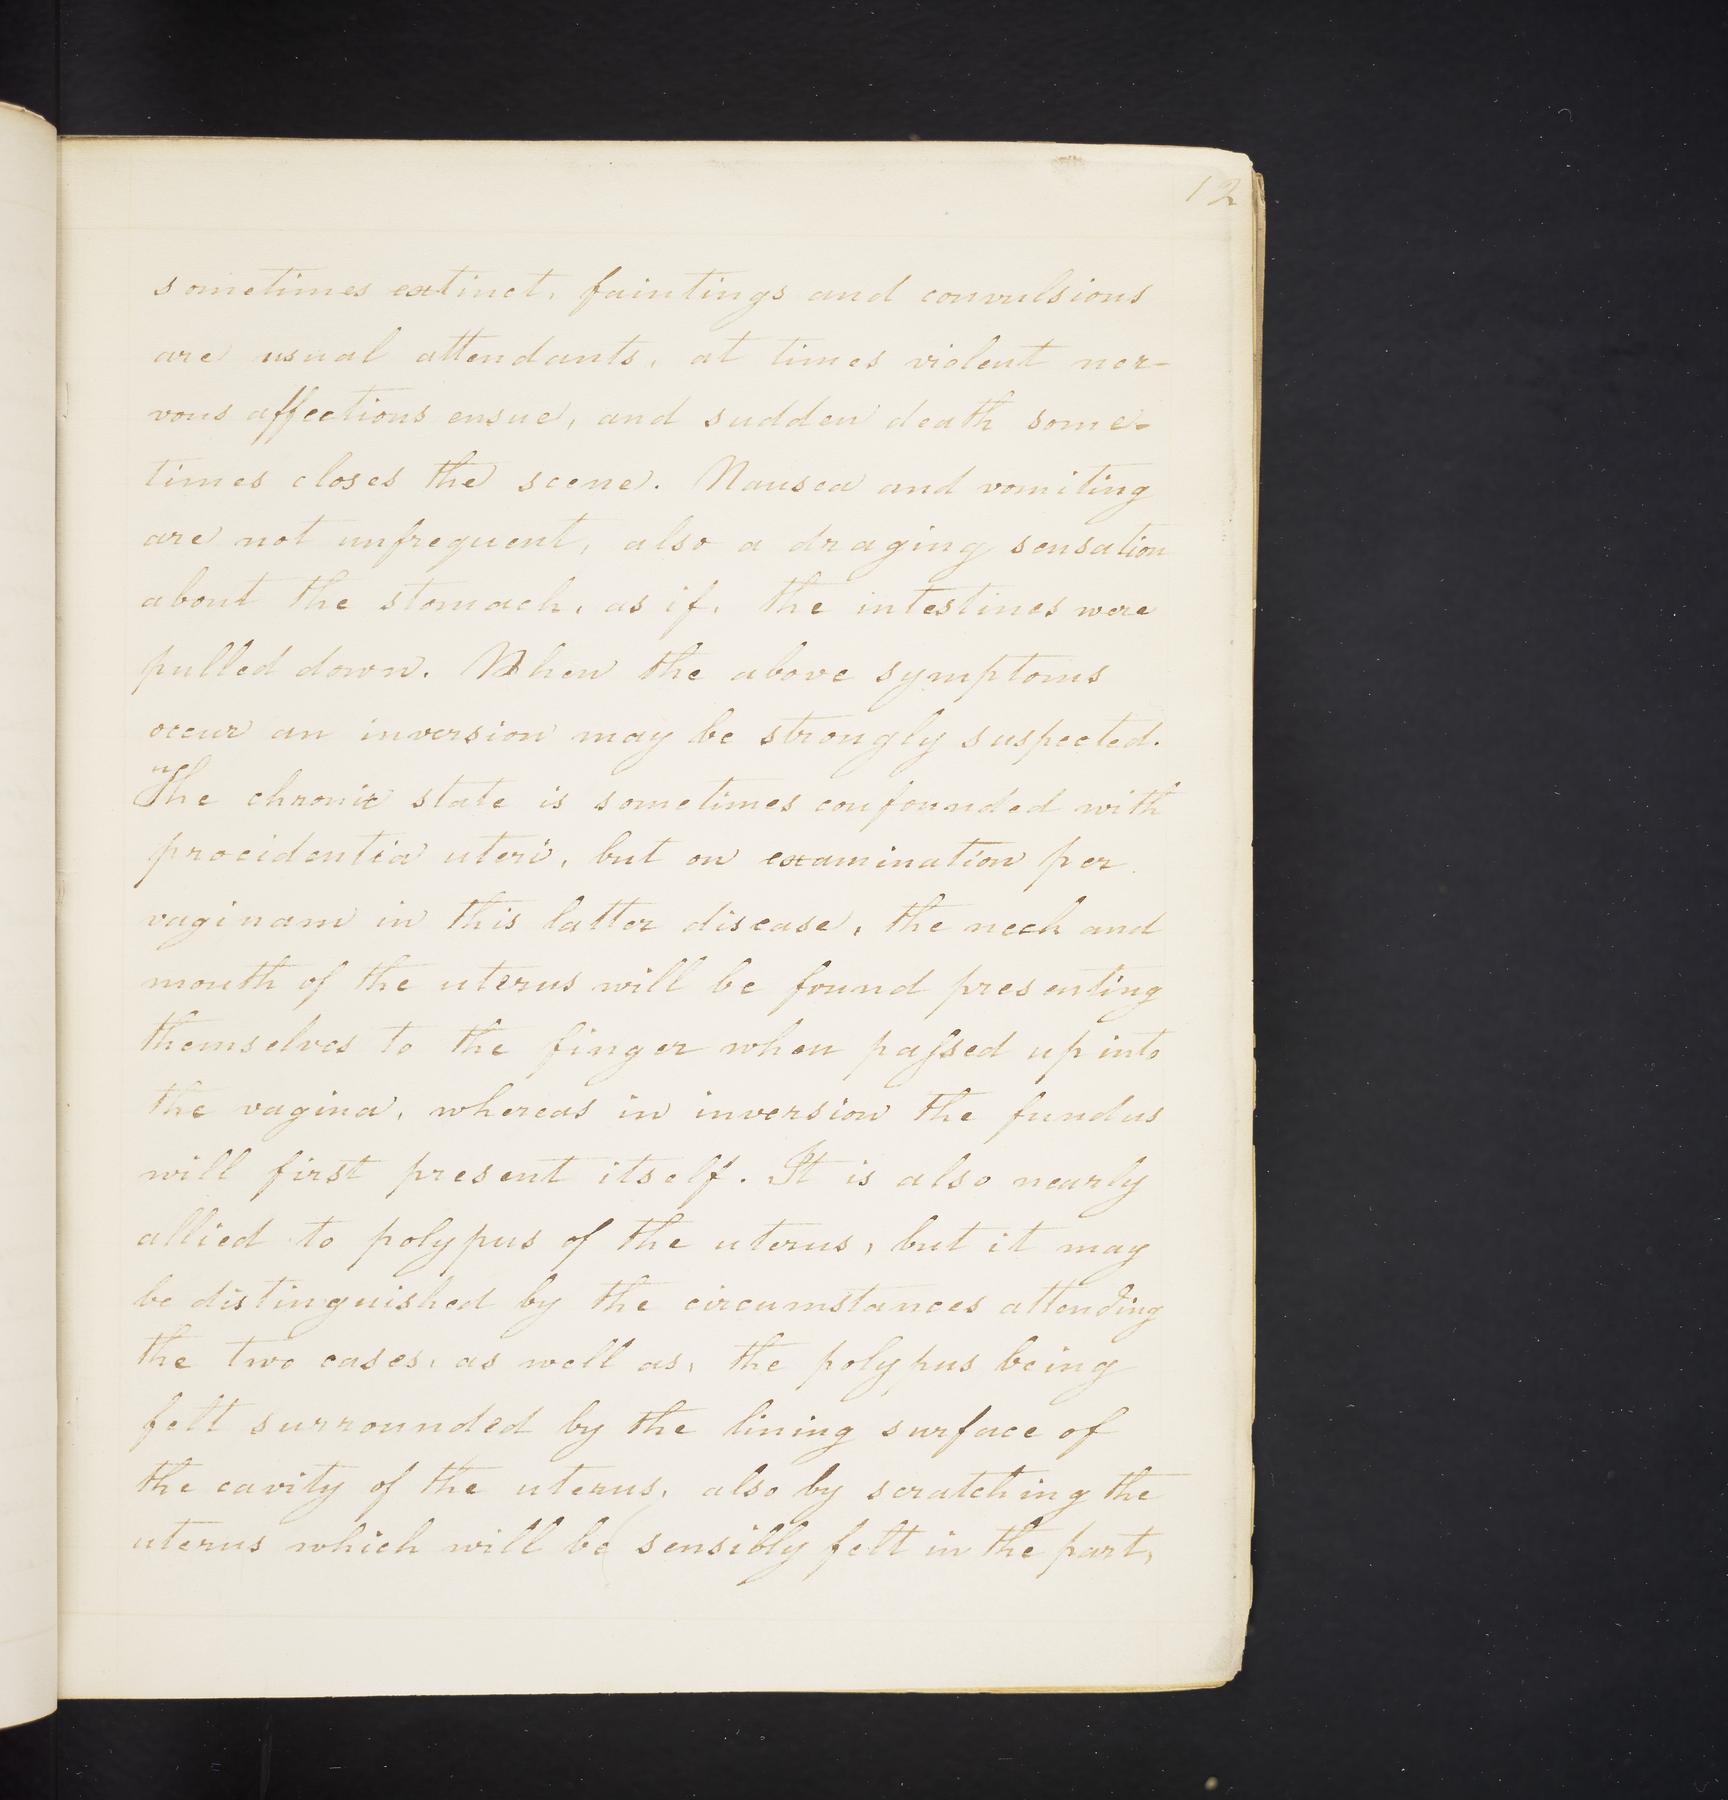 12
sometimes extinct, faintings and convulsions
are usual attendants, at times violent ner-
vous affections ensue, and sudden death some-
times closes the scene. Nausea and vomiting
are not unfrequent, also a draging sensation
about the stomach, as if, the intestines were
pulled down. When the above symptoms
occur an inversion may be strongly suspected.
The chronic state is sometimes confounded with
procidentia uteri, but on examination per
vaginam in this latter disease, the neck and
mouth of the uterus will be found presenting
themselves to the finger when passed up into
the vagina, whereas in inversion the fundus
will first present itself. It is also nearly
allied to polypus of the uterus, but it may
be distinguished by the circumstances attending
the two cases, as well as, the polypus being
felt surrounded by the lining surface of
the cavity of the uterus, also by scratching the
uterus which will be (sensibly felt in the part,